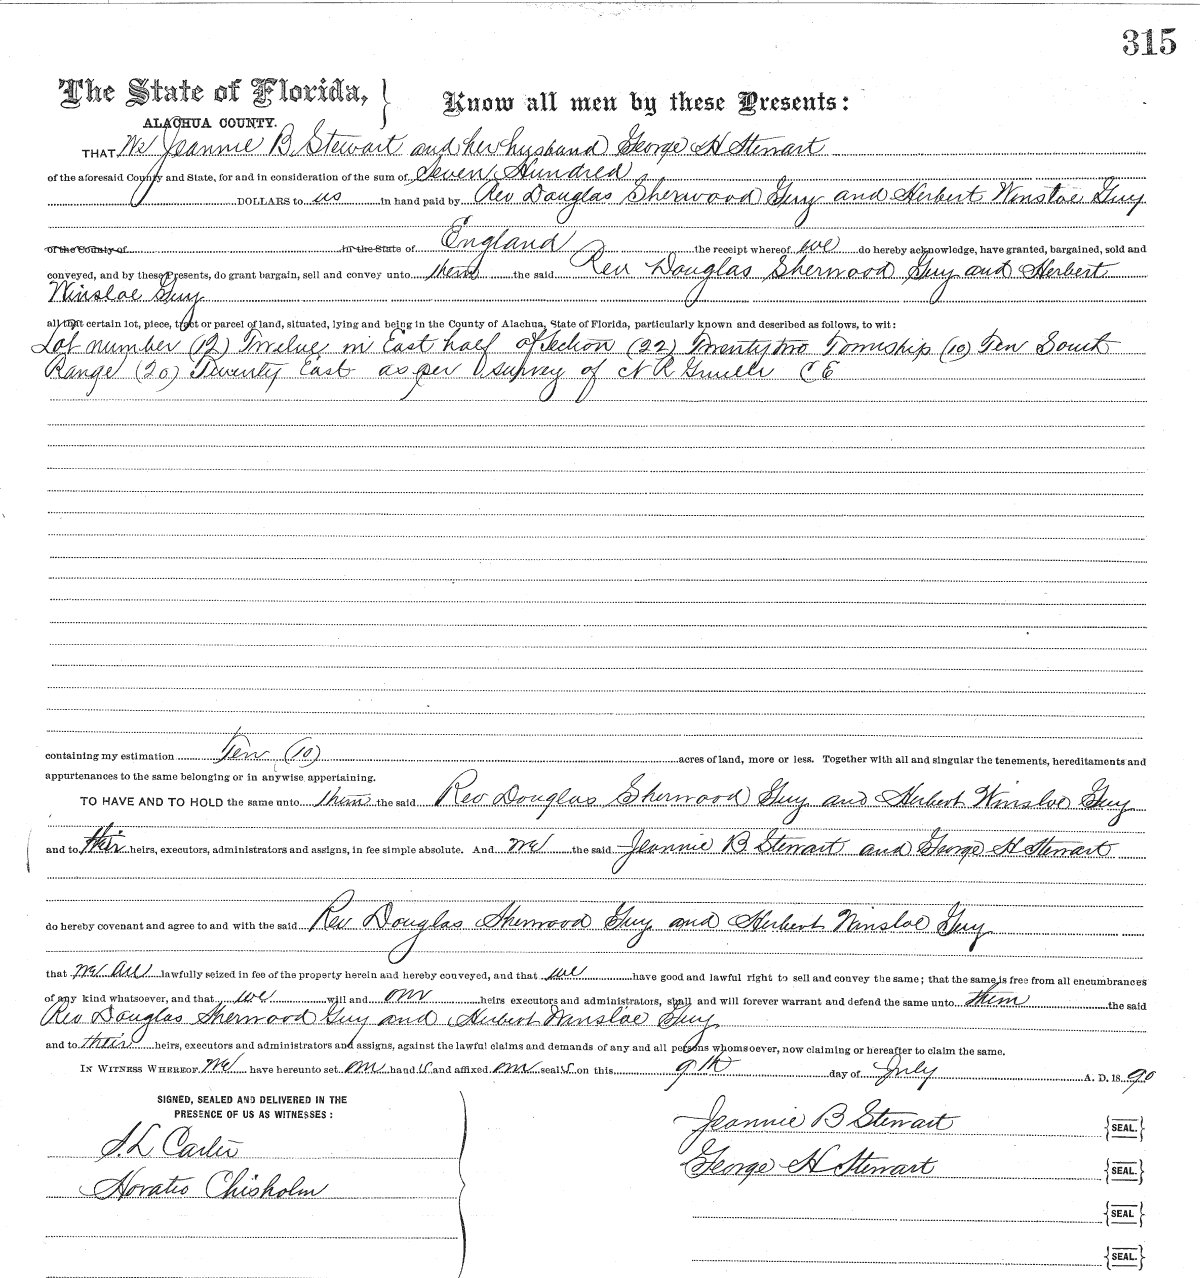 315
The State of Florida,
ALACHUA COUNTY.
Know all men by these Presents:
THAT We Jeannie B. Stewart and her husband George H Stewart
of the aforesaid County and State, for and in consideration of the sum of Seven Hundred
DOLLARS to us in hand paid by Rev Douglas Sherwood Guy and Herbert Winsloe Guy
of the County of in the State of England the receipt whereof we do hereby acknowledge, have granted, bargained, sold and
conveyed, and by these Presents, do grant bargain, sell and convey unto them the said Rev Douglas Sherwood Guy and Herbert
Winsloe Guy
all that certain lot, piece, tract or parcel of land, situated, lying and being in the County of Alachua, State of Florida, particularly known and described as follows, to wit:
Lot number (12) Twelve in East half of Section (22) Twenty two Township (10) Ten South
Range (20) Twenty East as per survey of N R C E
containing my estimation Ten (10) acres of land, more or less. Together with all and singular the tenements, hereditaments and
appurtenances to the same belonging or in anywise appertaining.
TO HAVE AND TO HOLD the same unto them the said Rev Douglas Sherwood Guy and Herbert Winsloe Guy
and to their heirs, executors, administrators and assigns, in fee simple absolute. And we the said Jeannie B Stewart and George H Stewart
do hereby covenant and agree to and with the said Rev Douglas Sherwood Guy and Herbert Winsloe Guy
that we are lawfully seized in fee of the property herein and hereby conveyed, and that we have good and lawful right to sell and convey the same; that the same is free from all encumbrances
of any kind whatsoever, and that we will and our heirs executors and administrators, shall and will forever warrant and defend the same unto them the said
Rev Douglas Sherwood Guy and Herbert Winsloe Guy
and to their heirs, executors and administrators and assigns, against the lawful claims and demands of any and all persons whomsoever, now claiming or hereafter to claim the same.
IN WITNESS WHEREOF We have hereunto set our hand s and affixed our seal s on this 9th day of July A. D. 18 90
SIGNED, SEALED AND DELIVERED IN THE
PRESENCE OF US AS WITNESSES:
S. L Carter
Horatio Chisholm
Jeannie B Stewart {SEAL.}
George H Stewart {SEAL.}
{SEAL.}
{SEAL.}